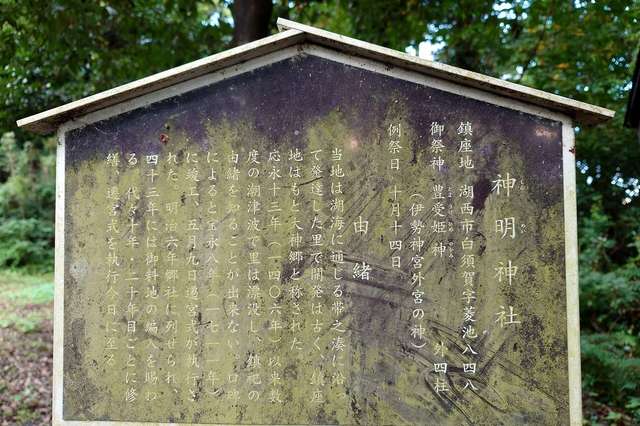 神明神社
鎮座地 湖西市白須賀字菱池八四八
御祭神 豊愛姫神 外四柱
（伊勢神宮外宮の神）
例祭日 十月十四日
由緒
当地は湖海に通じる帯之湊に沿
て発達した里で開発は古く、鎮座
地はもと大神郷と称された
応永十三年（一四〇六年）以来数
度の潮津波で里は漂没し、鎮祀の
由緒を知ることが出来ない 口碑
によると宝永八年（一七一一年）
に竣工 五月九日遷宮式が執行さ
れた 明治六年郷社に列せられ
四十三年には御料地の編入を賜わ
る 代々十年 二十年目ごとに修
繕、遷宮式を執行今日に至る